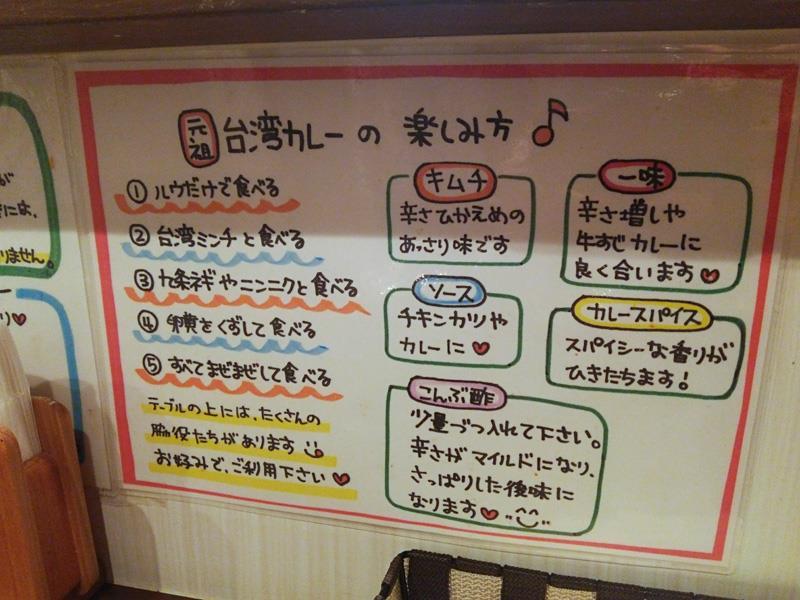 元祖 台湾カレーの 楽しみ方♪
① ルウだけで食べる
② 台湾ミンチと食べる
③ 九条ネギやニンニクと食べる
④ 卵黄をくずして食べる
⑤ すべてまぜまぜして食べる
テーブルの上には、たくさんの
脇役たちがあります
お好みで、ご利用下さい♥
キムチ
辛さひかえめの
あっさり味です
ソース
チキンカツや
カレーに♥
こんぶ酢
少量づつ入れて下さい。
辛さがマイルドになり、
さっぱりした後味に
なります♥
一味
辛さ増しや
牛すじカレーに
良く合います♥
カレースパイス
スパイシーな香りが
ひきたちます!
が
には、
りません。
り♥